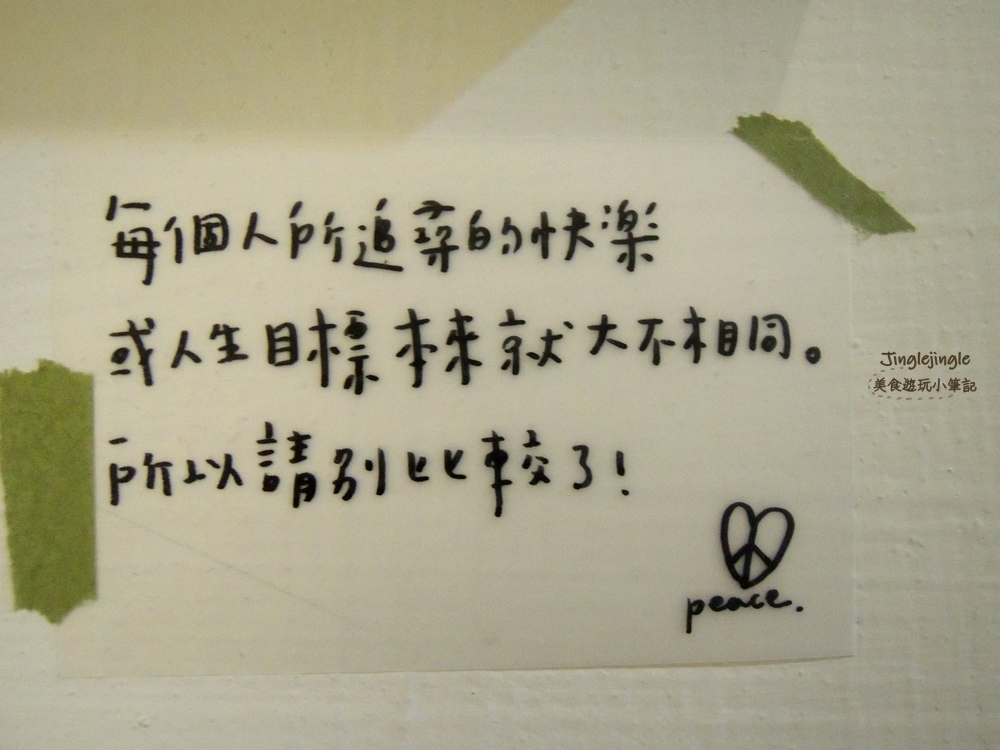 每個人所追尋的快樂
或人生目標本來就大不相同。
所以請別比較了!
peace.
Jinglejingle
美食遊玩小筆記